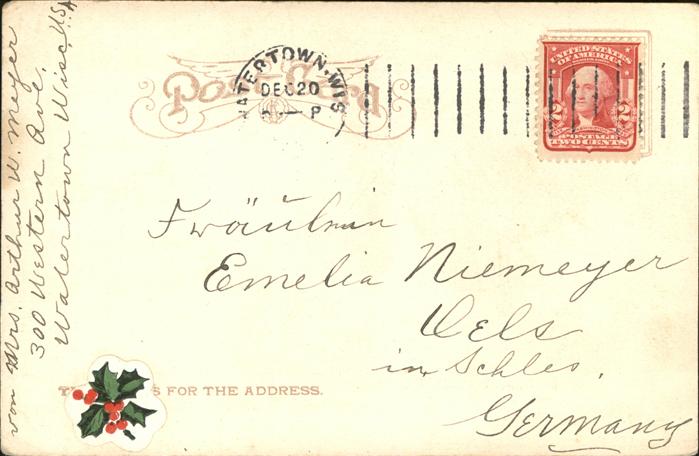 von Mrs. Arthur W. Meyer
300 Western Ave,
Watertown Wisc, USA
Post Card
WATERTOWN, WIS
DEC 20
P
UNITED STATES
OF AMERICA
2 2
POSTAGE
TWO CENTS
Fräulein
Emelia Niemeyer
Oels
in Schles,
Germany
S FOR THE ADDRESS.